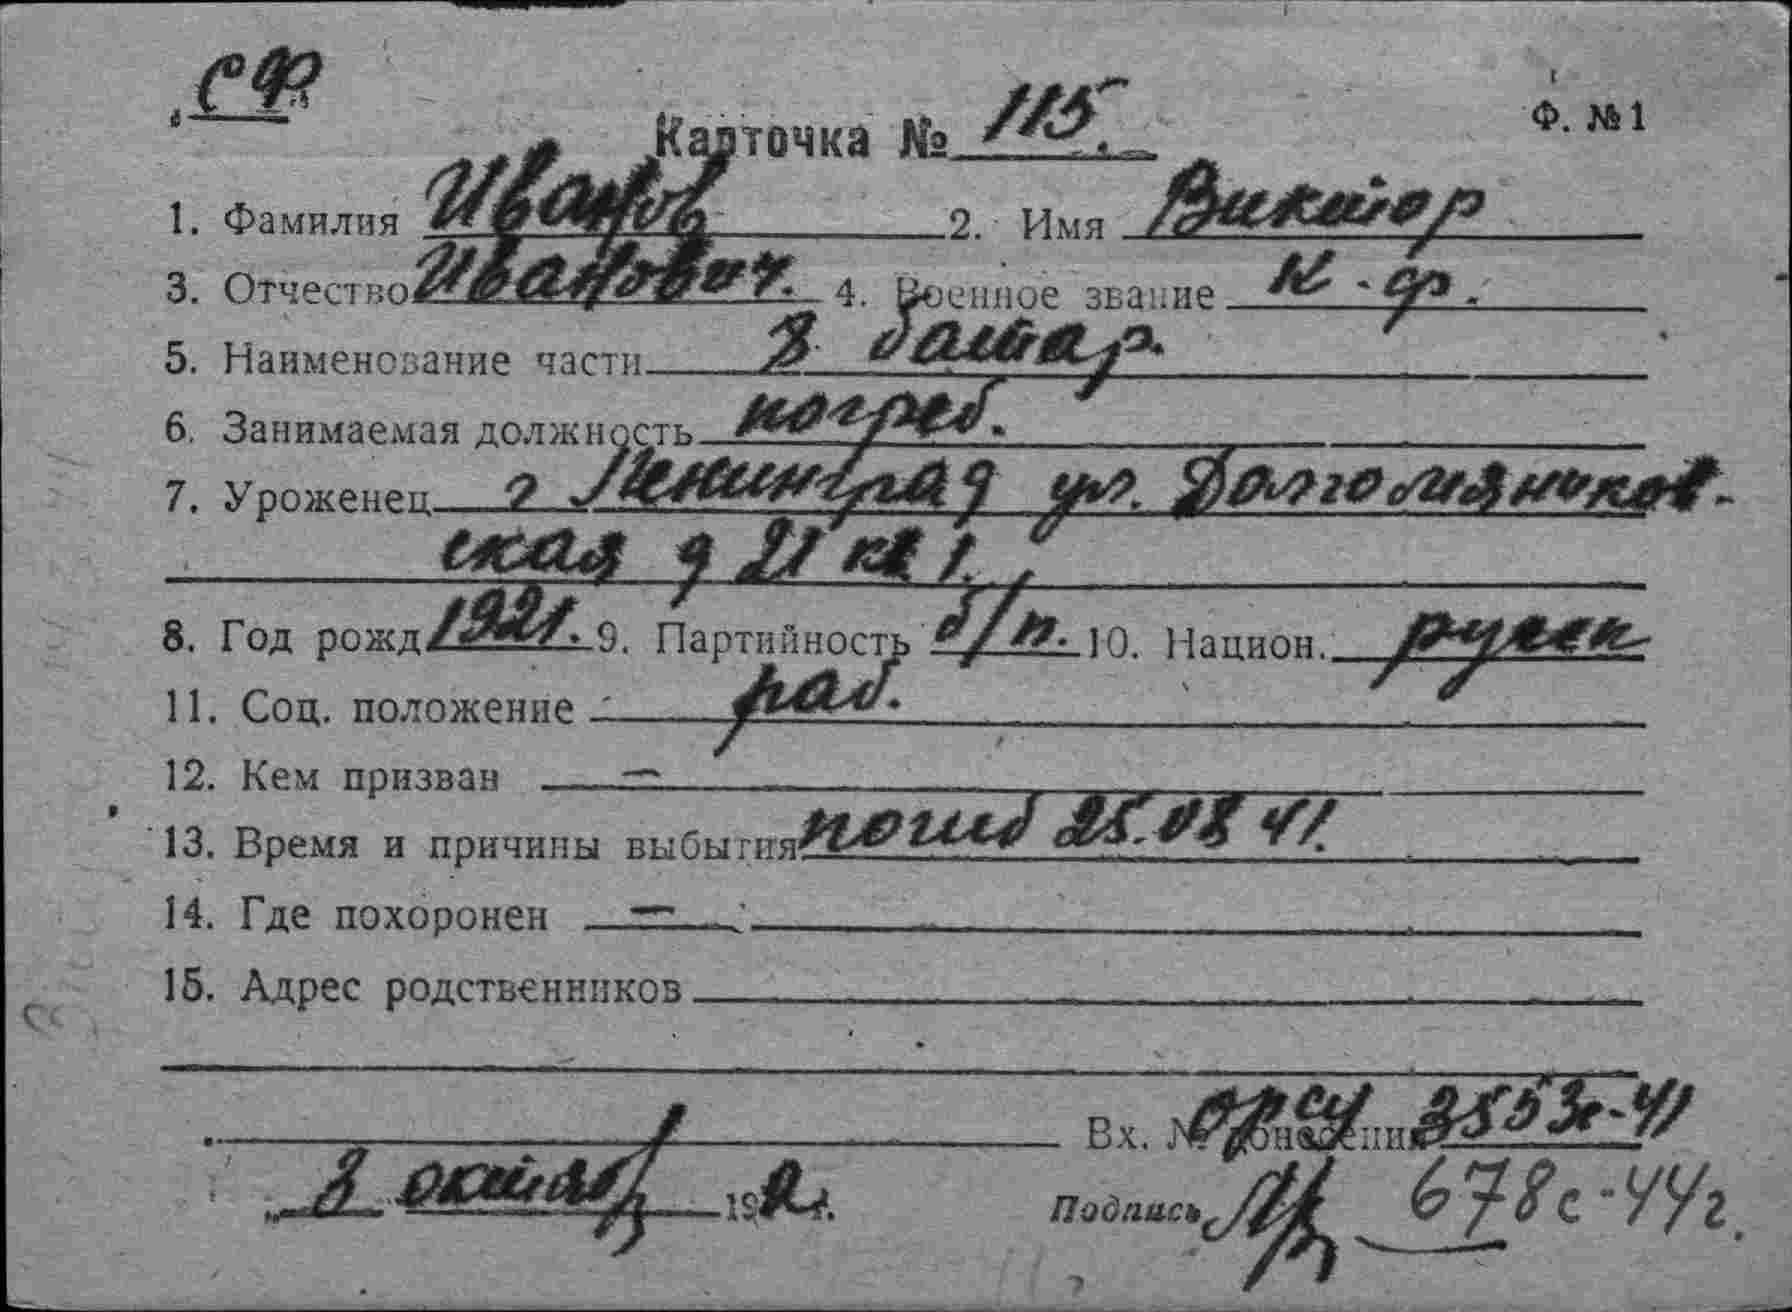 СФ
Ф. №1
Карточка № 115.
1. Фамилия Иванов 2. Имя Виктор
3. Отчество Иванович. 4. Военное звание к-ф.
5. Наименование части 3 батар.
6. Занимаемая должность погреб.
7. Уроженец г Ленинград ул.
ская д 21 кв 1.
8. Год рожд 1921. 9. Партийность б/п. 10. Национ. русск
11. Соц. положение раб.
12. Кем призван —
13. Время и причины выбытия погиб 25.08 41.
14. Где похоронен —
15. Адрес родственников
Вх. № 3с-41
октябр 19
Подпись 678с-44г.